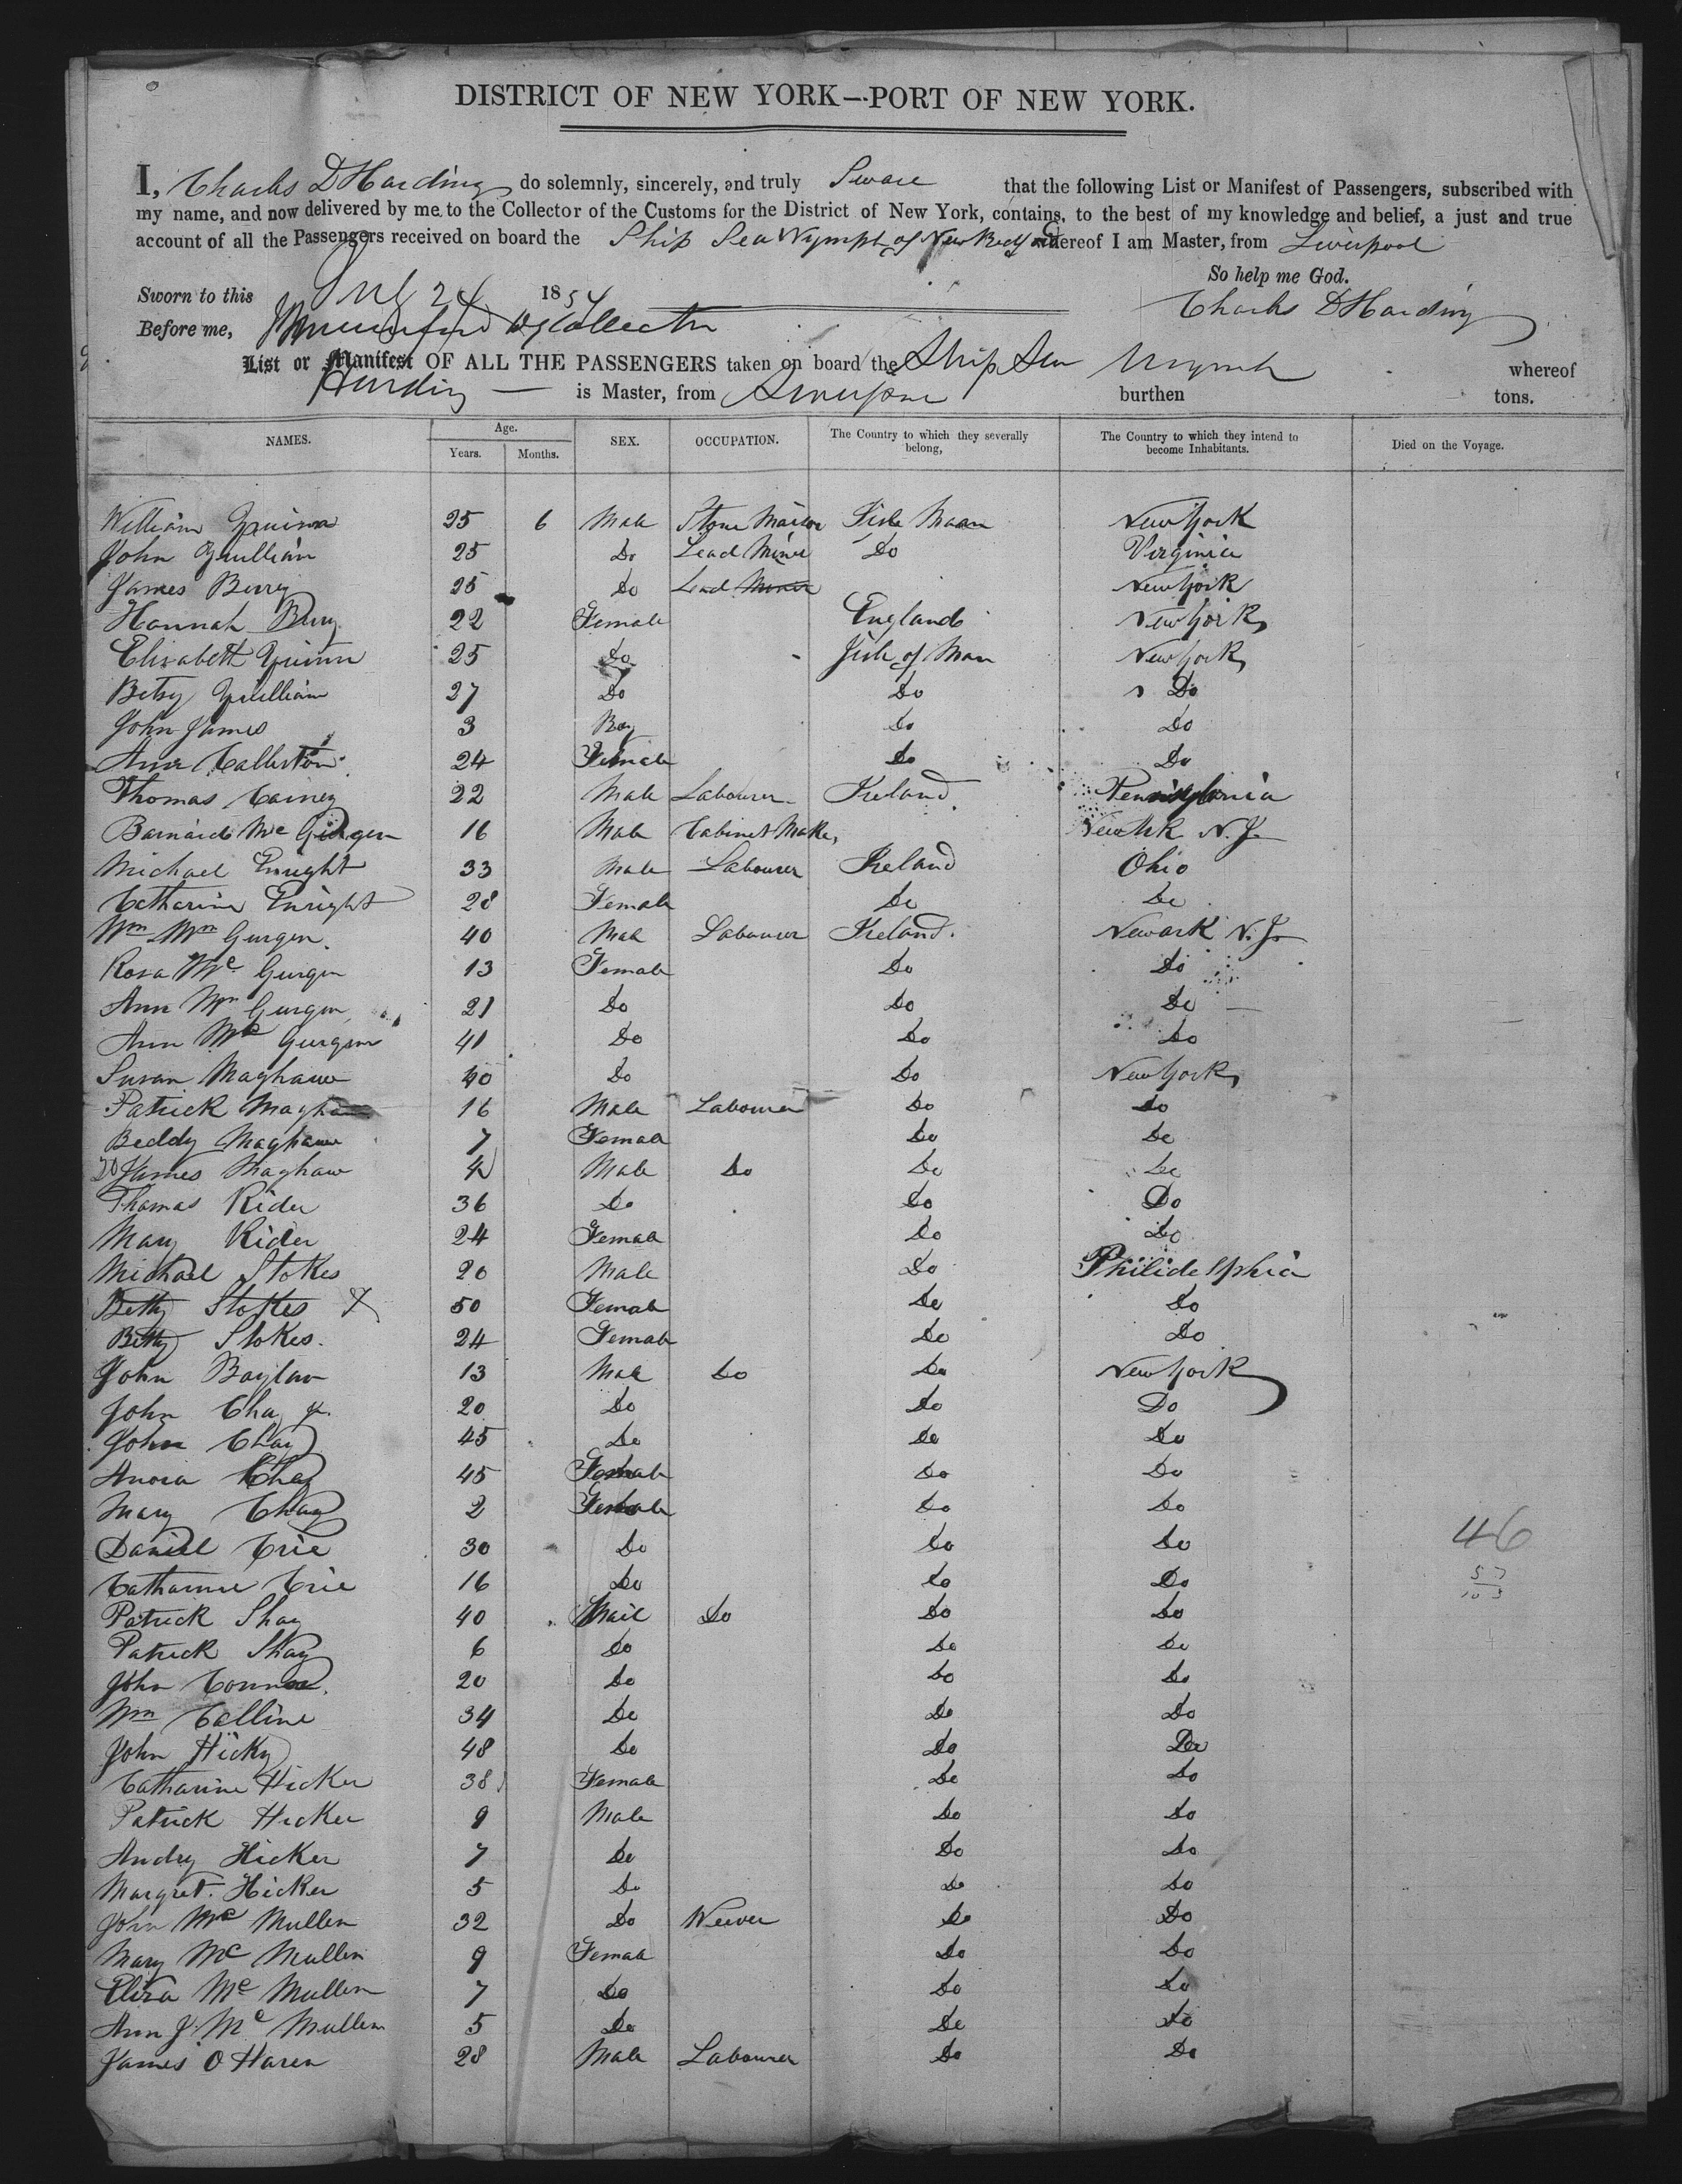 DISTRICT OF NEW YORK—PORT OF NEW YORK.
I, Charles D Harding do solemnly, sincerely, and truly Sware that the following List or Manifest of Passengers, subscribed with
my name, and now delivered by me to the Collector of the Customs for the District of New York, contains, to the best of my knowledge and belief, a just and true
account of all the Passengers received on board the Ship Sea Nymph of New Bedford whereof I am Master, from Liverpool
So help me God.
Sworn to this July 24 1854 Charles D Harding
Before me, Collector
List or Manifest OF ALL THE PASSENGERS taken on board the Ship Sea Nymph whereof
Harding is Master, from Liverpool burthen tons.
NAMES. Age. Years. Months. SEX. OCCUPATION. The Country to which they severally belong, The Country to which they intend to become Inhabitants. Died on the Voyage.
William 25 6 Male Stone Maison Isle Maan New York
John 25 Do Lead Miner Do Virginia
James Berry 25 Do Lead Miner New York
Hannah Bery 22 Female England New York
Elizabett 25 Do Isle of Man New York
Betsy 27 Do Do Do
John James 3 Boy Do Do
Ann 24 Female Do Do
Thomas Cainey 22 Male Labourer Ireland
Barnard Mc 16 Male Cabinet Make N. J.
Michael Enright 33 Male Labourer Ireland Ohio
Catharine Enright 28 Female Do Do
Wm Mc Gurgen. 40 Male Labourer Ireland. Newark N. J.
Rosa Mc Gurgen 13 Female Do Do
Ann Mc Gurgen 21 Do Do Do
Ann Mc Gurgen 41 Do Do Do
Susan Maghaw 40 Do Do New York
Patrick 16 Male Labourer Do Do
Beddy Maghaw 7 Female Do Do
20 James Maghaw 4 Male Do Do Do
Thomas Rider 36 Do Do Do
Mary Rider 24 Female Do Do
Michael Stokes 20 Male Do Philidelphia
Betty Stokes X 50 Female Do Do
Betty Stokes. 24 Female Do Do
John Boylan 13 Male Do Do New York
John Chay Jr. 20 Do Do Do
John Chay 45 Do Do Do
Anora Chay 45 Female Do Do
Mary Chay 2 Female Do Do
46
Daniel Crie 30 Do Do Do
57
Catharine Crie 16 Do Do Do
103
Patrick Shay 40 Mail Do Do Do
Patrick Shay 6 Do Do Do
John 20 Do Do Do
Wm Calline 34 Do Do Do
John Hicky 48 Do Do Do
Catharine Hicker 38 Female Do Do
Patrick Hicker 9 Male Do Do
Andry Hicker 7 Do Do Do
Margret. Hicker 5 Do Do Do
John Mc Mullen 32 Do Weever Do Do
Mary Mc Mullen 9 Female Do Do
Eliza Mc Mullen 7 Do Do Do
Ann J. Mc Mullen 5 Do Do Do
James O Haren 28 Male Labourer Do Do